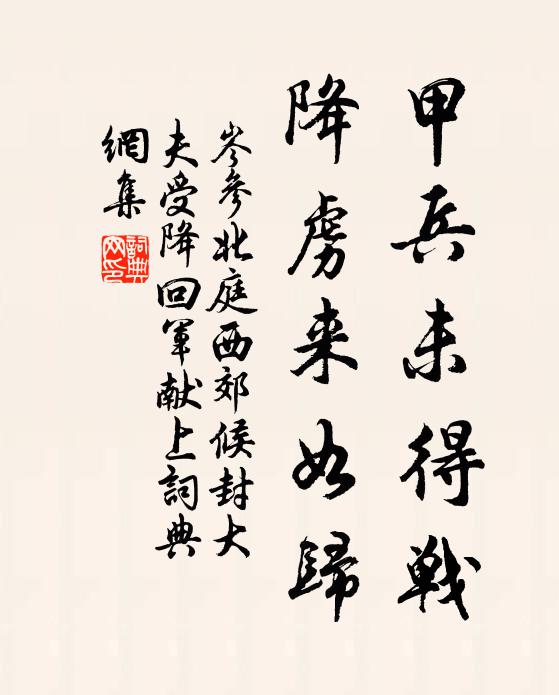 甲兵未得戦
降虏来如歸
岑參北庭西郊候封大
夫受降回軍献上詞典
網集
詞典網印